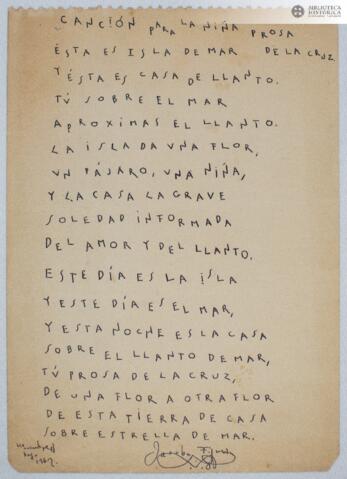 BIBLIOTECA
HISTÓRICA
CANCIÓN PARA LA NIÑA PROSA
ÉSTA ES ISLA DE MAR DE LA CRUZ.
Y ÉSTA ES CASA DE LLANTO.
TÚ SOBRE EL MAR
APROXIMAS EL LLANTO.
LA ISLA DA UNA FLOR,
UN PÁJARO, UNA NIÑA,
Y LA CASA LA GRAVE
SOLEDAD INFORMADA
DEL AMOR Y DEL LLANTO.
ESTE DÍA ES LA ISLA
Y ESTE DÍA ES EL MAR,
Y ESTA NOCHE ES LA CASA
SOBRE EL LLANTO DE MAR,
TÚ PROSA DE LA CRUZ,
DE UNA FLOR A OTRA FLOR
DE ESTA TIERRA DE CASA
SOBRE ESTRELLA DE MAR.